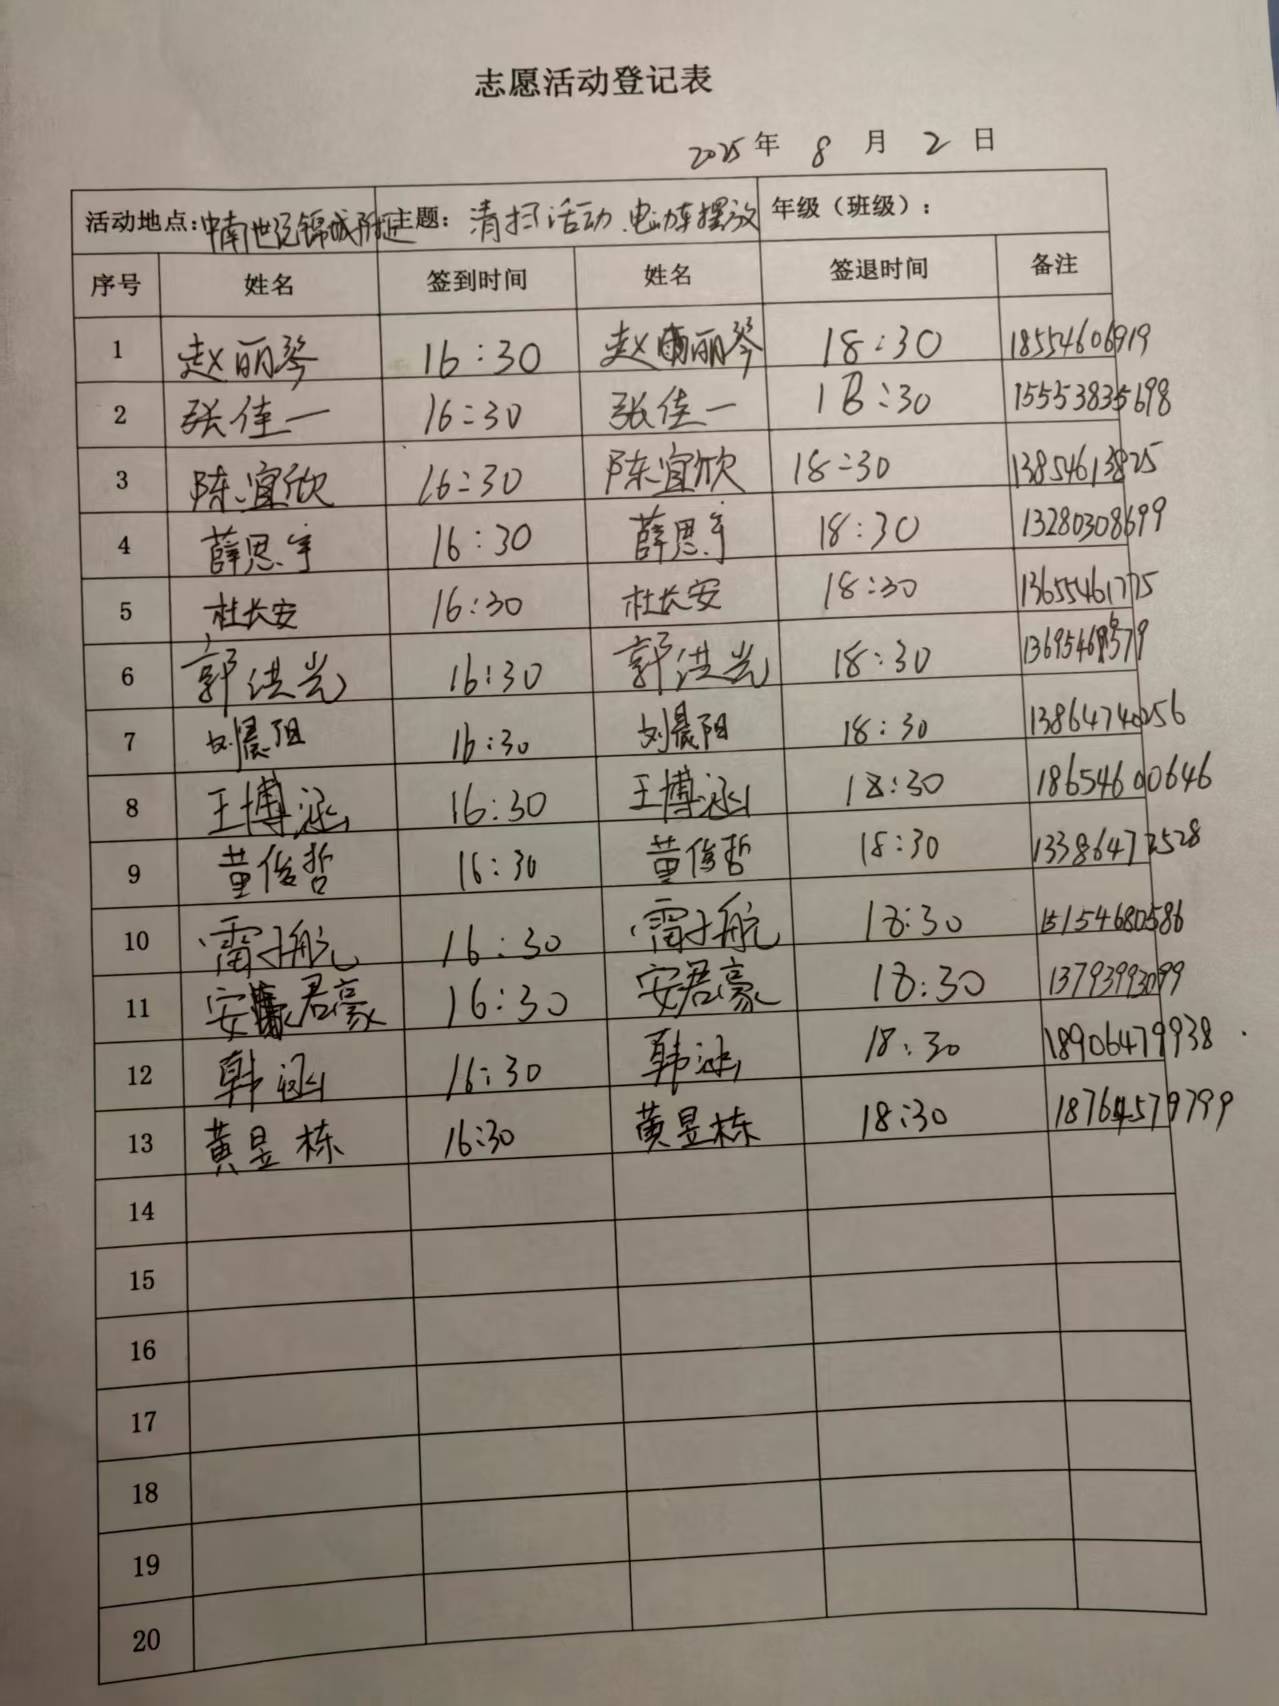 志愿活动登记表
2025年 8 月 2 日
活动地点:中南世纪锦城附近 主题: 清扫活动、电动车摆放 年级（班级）:
序号 姓名 签到时间 姓名 签退时间 备注
1 赵丽琴 16:30 赵丽琴 18:30 18554606919
2 张佳一 16:30 张佳一 18:30 15553835698
3 陈宜欣 16:30 陈宜欣 18:30 13854613825
4 薛思宇 16:30 薛思宇 18:30 13280308699
5 杜长安 16:30 杜长安 18:30 13655461775
6 郭洪光 16:30 郭洪光 18:30
7 刘晨阳 16:30 刘晨阳 18:30 13864740256
8 王博涵 16:30 王博涵 18:30 18654600646
9 董俊哲 16:30 董俊哲 18:30
10 雷子航 16:30 雷子航 18:30 15154680586
11 安君豪 16:30 安君豪 18:30 13793993099
12 韩涵 16:30 韩涵 18:30 18906479938
13 黄昱栋 16:30 黄昱栋 18:30 18764579799
14
15
16
17
18
19
20